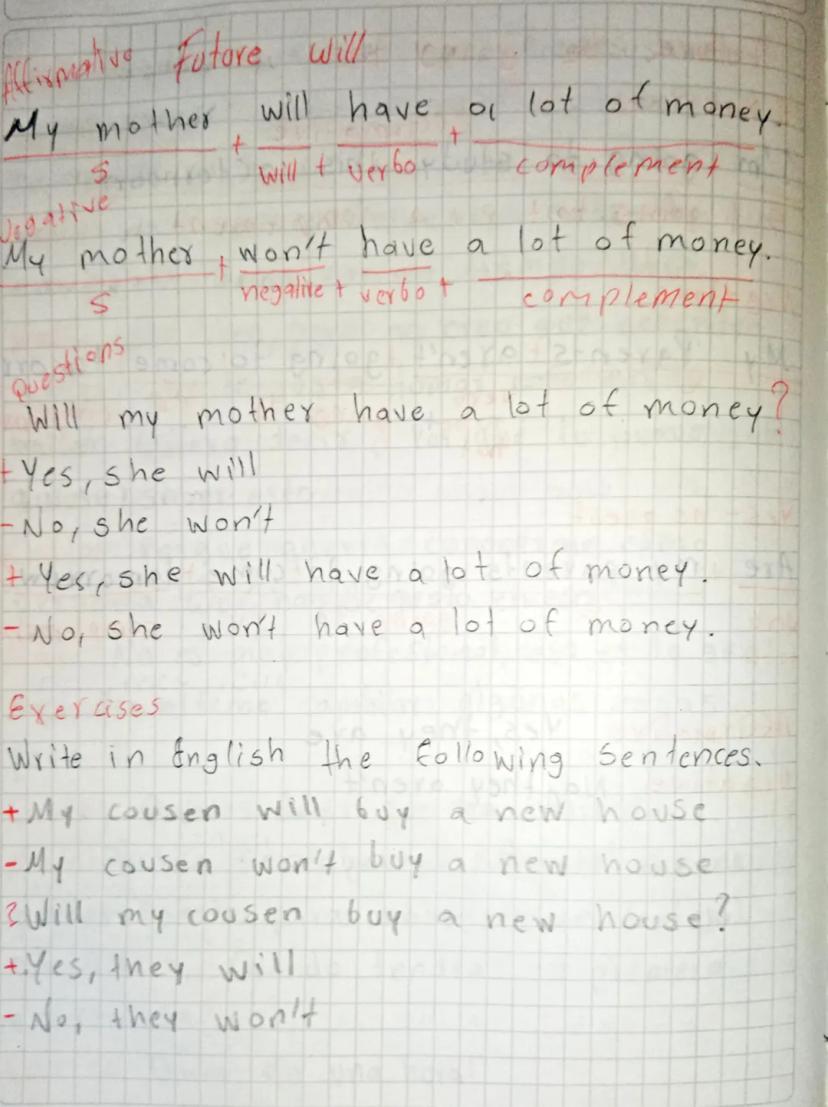 Affirmative Future will
My mother + will have + a lot of money.
S will + verbo complement
Negative
My mother + won't have a lot of money.
S negative + verbo + complement
Questions
Will my mother have a lot of money?
+ Yes, she will
- No, she won't
+ Yes, she will have a lot of money.
- No, she won't have a lot of money.
Exercises
Write in English the following sentences.
+ My cousen will buy a new house
- My cousen won't buy a new house
? Will my cousen buy a new house?
+ Yes, they will
- No, they won't